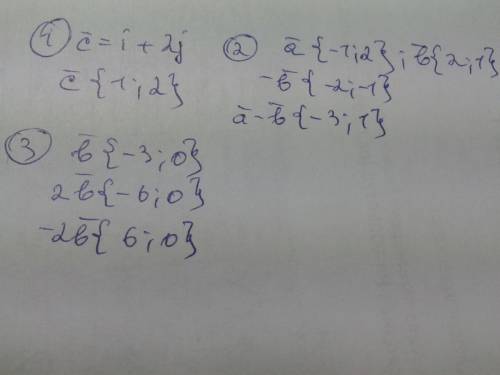 ① c̄ = i + 2j
c̄ {1; 2}
② ā {-1; 2}; b̄ {2; 1}
-b̄ {-2; -1}
ā - b̄ {-3; 1}
③ b̄ {-3; 0}
2b̄ {-6; 0}
-2b̄ {6; 0}